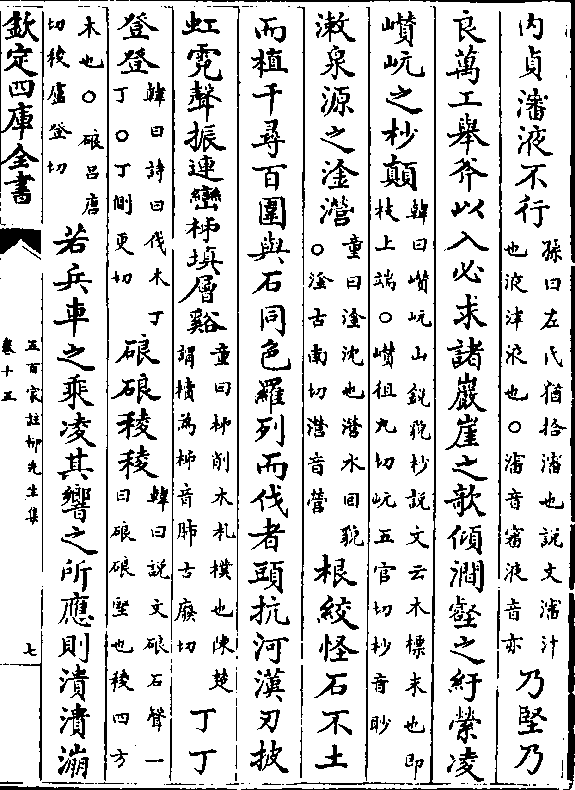 内貞瀋液不行孫曰左氏猶拾瀋也説文瀋汁也液津液也○瀋音審液音亦乃堅乃
良萬工舉斧以入必求諸巖崖之歌傾澗壑之紆縈凌
巑岏之杪顛韓曰巑岏山鋭貌杪説文云木標末也即枝上端○巑徂丸切岏五官切杪音眇
漱泉源之淦瀯童曰淦沈也瀯水回貌○淦古南切瀯音營根絞怪石不土
而植千尋百圍與石同色羅列而伐者頭抗河漢刃披
虹霓聲振連巒柹填層谿童曰柹削木札樸也陳楚謂櫝為柹音肺古廢切丁丁
登登韓曰詩曰伐木丁丁○丁側更切硠硠稜稜韓曰説文硠石聲一曰硠硠堅也稜四方
木也○硠呂唐切稜盧登切若兵車之乘凌其響之所應則潰潰漰
欽定四庫全書
五百家註柳先生集
卷十五
七